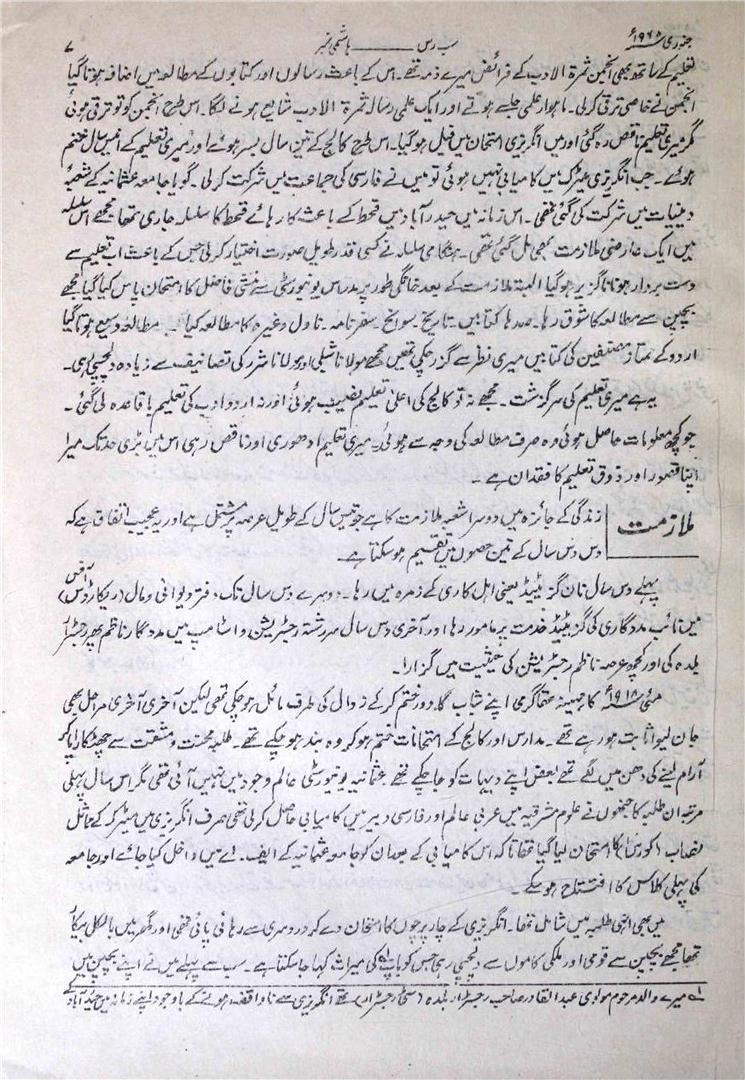 جنوری ۱۹۶۵ء سب رس ـــــــ ہاشمی نمبر ۷
تعلیم کے ساتھ بھی انجمن ثمرۃ الادب کے فرائض میرے ذمہ تھے۔ اس کے باعث رسالوں اور کتابوں کے مطالعہ میں اضافہ ہوتا گیا
انجمن نے خاصی ترقی کرلی۔ ماہوار علمی جلسے ہوتے اور ایک علمی رسالہ ثمرۃ الادب شایع ہونے لگا۔ اس طرح انجمن کو تو ترقی ہوئی
مگر میری تعلیم ناقص رہ گئی اور میں انگریزی امتحان میں فیل ہو گیا۔ اس طرح کالج کے تین سال بسر ہوئے اور میری تعلیم کے انیس سال ختم
ہوئے۔ جب انگریزی میٹرک میں کامیابی نہیں ہوئی تو میں نے فارسی کی جماعت میں شرکت کرلی۔ گویا جامعہ عثمانیہ کے شعبۂ
دینیات میں شرکت کی گئی تھی۔ اس زمانہ میں حیدرآباد میں قحط کے باعث کارہائے قحط کا سلسلہ جاری تھا مجھے اس سلسلہ
میں ایک عارضی ملازمت بھی مل گئی تھی۔ ہنگامی سلسلہ نے کسی قدر طویل صورت اختیار کرلی جس کے باعث اب تعلیم سے
دست بردار ہونا ناگزیر ہو گیا البتہ ملازمت کے بعد خانگی طور پر مدراس یونیورسٹی سے منشی فاضل کا امتحان پاس کیا گیا مجھے
بچپن سے مطالعہ کا شوق رہا۔ صدہا کتابیں۔ تاریخ۔ سوانح۔ سفرنامہ۔ ناول وغیرہ کا مطالعہ کیا۔ مطالعہ وسیع ہوتا گیا
اردو کے ممتاز مصنفین کی کتابیں میری نظر سے گزر چکی تھیں مجھے مولانا شبلی اور مولانا شرر کی تصانیف سے زیادہ دلچسپی رہی۔
یہ ہے میری تعلیم کی سرگزشت۔ مجھے نہ تو کالج کی اعلیٰ تعلیم نصیب ہوئی اور نہ اردو ادب کی تعلیم باقاعدہ لی گئی۔
جو کچھ معلومات حاصل ہوئی وہ صرف مطالعہ کی وجہ سے ہوئی۔ میری تعلیم ادھوری اور ناقص رہی اس میں بڑی حد تک میرا
اپنا قصور اور ذوق تعلیم کا فقدان ہے۔
ملازمت
زندگی کے جائزہ میں دوسرا شعبہ ملازمت کا ہے جو تیس سال کے طویل عرصہ پر مشتمل ہے اور یہ عجیب اتفاق ہے کہ
دس دس سال کے تین حصوں میں تقسیم ہو سکتا ہے۔
پہلے دس سال نان گزیٹیڈ یعنی اہل کاری کے زمرہ میں رہا۔ دوسرے دس سال تک دفتر دیوانی و مال (ریکارڈس آفس)
میں نائب مددگاری کی گزیٹیڈ خدمت پر مامور رہا اور آخری دس سال سررشتہ رجسٹریشن و اسٹامپ میں مددگار ناظم پھر رجسٹرار
بلدہ کی اور کچھ عرصہ ناظم رجسٹریشن کی حیثیت میں گزارا۔
مئی ۱۹۱۸ء کا مہینہ تھا گرمی اپنے شباب کا دور ختم کر کے زوال کی طرف مائل ہو چکی تھی لیکن آخری آخری مراحل بھی
جان لیوا ثابت ہو رہے تھے۔ مدارس اور کالج کے امتحانات ختم ہو کر وہ بند ہو چکے تھے۔ طلبہ محنت و مشقت سے چھٹکارا پا کر
آرام لینے کی دھن میں لگے تھے بعض اپنے دیہات کو جا چکے تھے عثمانیہ یونیورسٹی عالم وجود میں نہیں آئی تھی مگر اس سال پہلی
مرتبہ ان طلبہ کا جنھوں نے علوم مشرقیہ میں عربی عالم اور فارسی دبیر میں کامیابی حاصل کرلی تھی صرف انگریزی میں میٹرک کے مماثل
نصاب (کورس) کا امتحان لیا گیا تھا تاکہ اس کامیابی کے بعد ان کو جامعہ عثمانیہ کے ایف۔ اے میں داخل کیا جائے اور جامعہ
کی پہلی کلاس کا افتتاح ہو سکے۔
میں بھی انہی طلبہ میں شامل تھا۔ انگریزی کے چار پرچوں کا امتحان دے کر درد سری سے رہائی پائی تھی اور گھر میں بالکل بیکار
تھا مجھے بچپن سے قومی اور ملکی کاموں سے دلچسپی رہی جس کو باپ۱ کی میراث کہا جا سکتا ہے۔ سب سے پہلے میں نے اپنے بچپن میں
۱ میرے والد مرحوم مولوی عبدالقادر صاحب رجسٹرار بلدہ (سٹی رجسٹرار) تھے انگریزی سے ناواقف ہونے کے باوجود اپنے زمانہ میں حیدرآباد کے